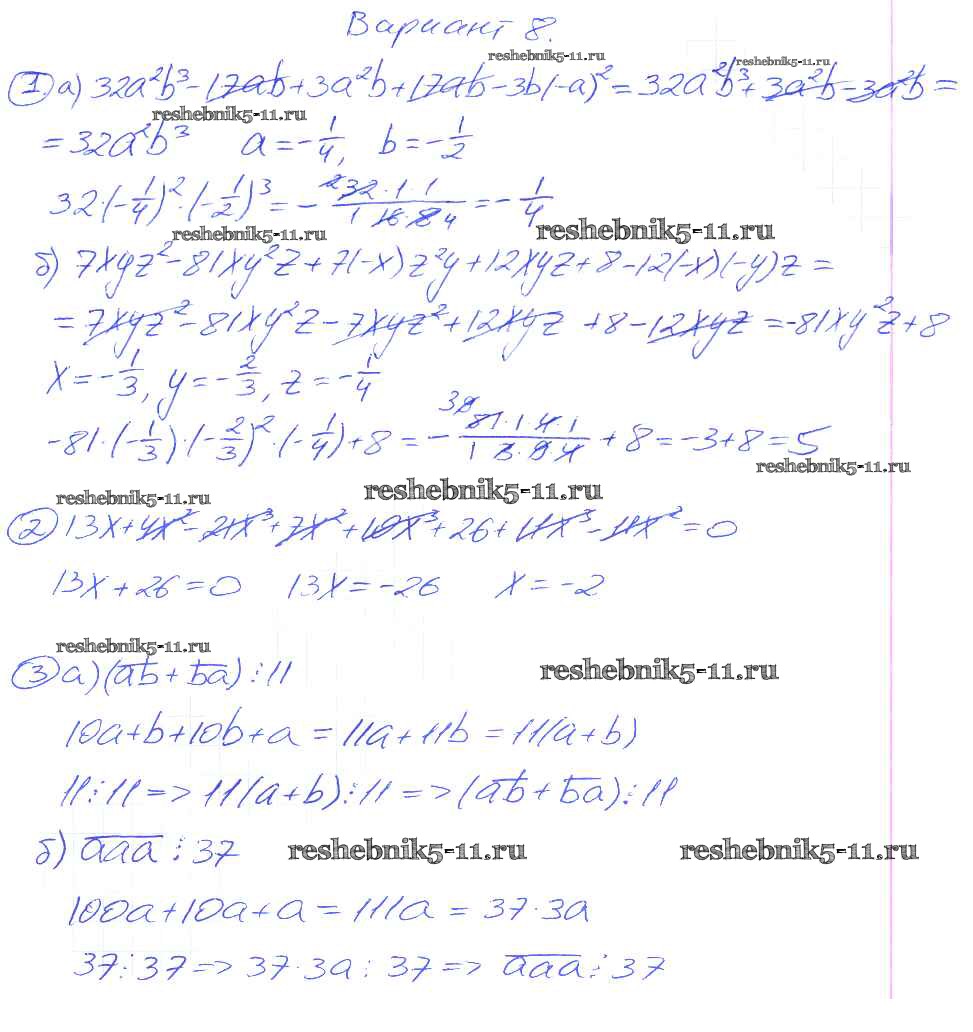 Вариант 8.
reshebnik5-11.ru
reshebnik5-11.ru
① а) 32a²b³ - 17ab + 3a²b + 17ab - 3b(-a)² = 32a²b³ + 3a²b - 3a²b =
reshebnik5-11.ru
= 32a²b³ a = -1/4, b = -1/2
32·(-1/4)²·(-1/2)³ = - (2 32·1·1)/(1 16·8 4) = -1/4
reshebnik5-11.ru reshebnik5-11.ru
б) 7xyz² - 81xy²z + 7(-x)z²y + 12xyz + 8 - 12(-x)(-y)z =
= 7xyz² - 81xy²z - 7xyz² + 12xyz + 8 - 12xyz = -81xy²z + 8
x = -1/3, y = -2/3, z = -1/4
-81·(-1/3)·(-2/3)²·(-1/4) + 8 = - (81·1·4·1)/(1 3·9·4) + 8 = -3 + 8 = 5
reshebnik5-11.ru
reshebnik5-11.ru reshebnik5-11.ru
② 13x + 4x² - 21x³ + 7x² + 10x³ + 26 + 11x³ - 11x² = 0
13x + 26 = 0 13x = -26 x = -2
reshebnik5-11.ru
reshebnik5-11.ru
③ а) (ab + ba) ⋮ 11
10a + b + 10b + a = 11a + 11b = 11(a + b)
11 ⋮ 11 => 11(a + b) ⋮ 11 => (ab + ba) ⋮ 11
б) aaa ⋮ 37 reshebnik5-11.ru reshebnik5-11.ru
100a + 10a + a = 111a = 37·3a
37 ⋮ 37 => 37·3a ⋮ 37 => aaa ⋮ 37